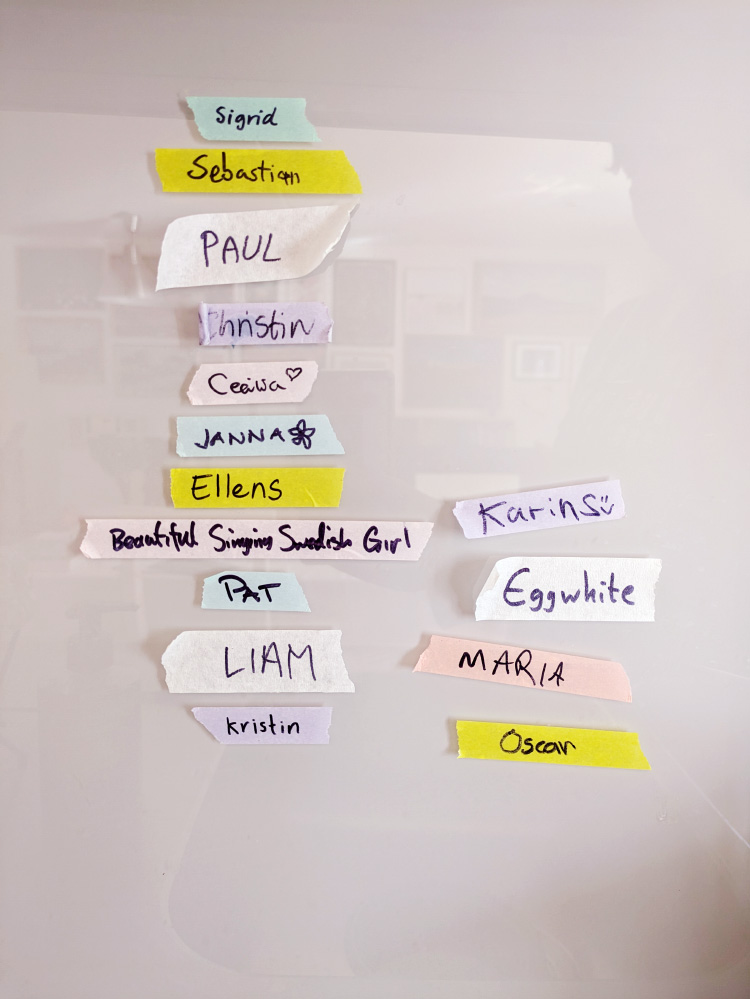 Sigrid
Sebastian
PAUL
Christin
JANNA
Ellens
Beautiful Singing Swedish Girl
PAT
LIAM
kristin
Karins
Eggwhite
MARIA
Oscar